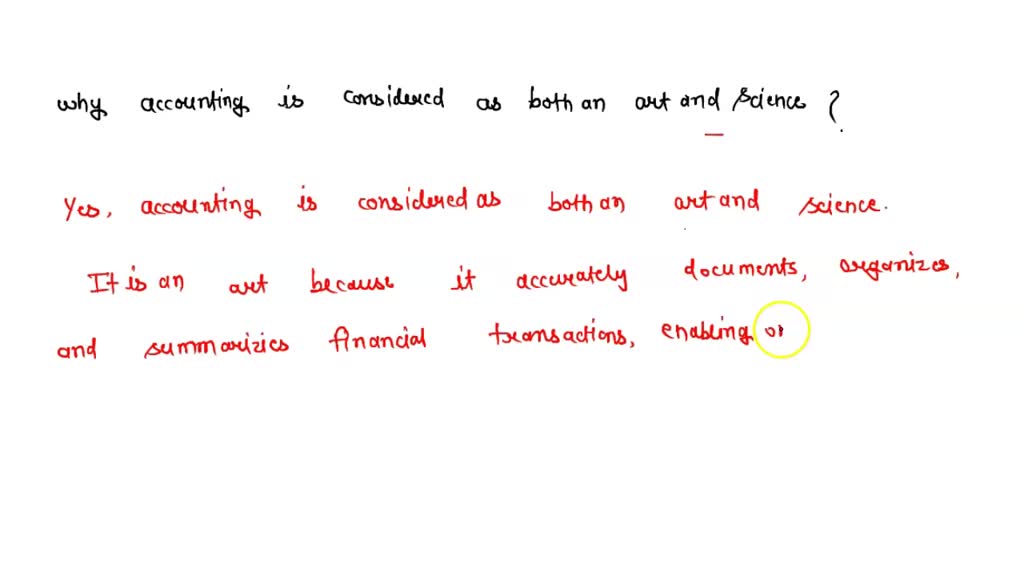 why accounting is considered as both an art and science ?
Yes, accounting is considered as both an art and science.
It is an art because it accurately documents, organizes,
and summarizies financial transactions, enabling